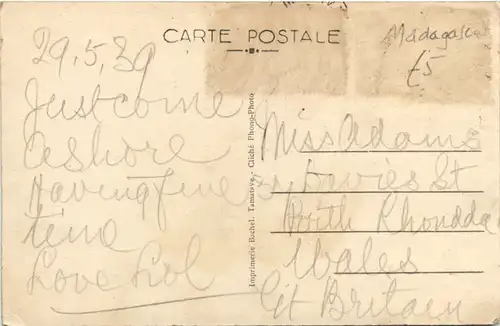 CARTE POSTALE
Madagasca
£5
29.5.39
Just come
Ashore
Having fine
time
Love Lol
Imprimerie Bochel. Tamatave - Cliché Phong-Photo
Miss Adams
Davies St
Porth Rhondda
Wales
Gt Britain